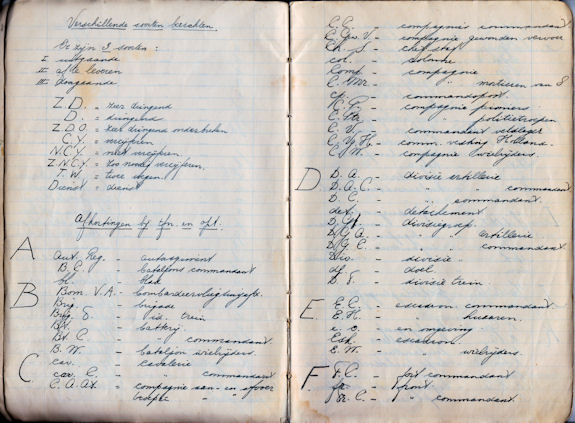 Verschillende soorten berichten.
Er zijn 3 soorten:
I uitgaande
II af te leveren
III doorgaande
Z.D. = zeer dringend
D. = dringend
Z.D.O. = zeer dringend onderbreken
C.Y. = vercijferen
N.C.Y. = niet vercijferen.
Z.N.C.Y. = zoo noodig vercijferen.
T.W. = twee wegen.
Dienst = dienst
Afkortingen bij
A
Aut. Reg. -
B.C. - bataljons commandant
bl. - blad
B
Bom. V.A. -
Brig. - brigade
Brig. - id. trein
Bt. - batterij.
Bt. C. - " commandant.
B.W. - bataljon wielrijders.
C
cav. - cavalerie
cav. C. - " commandant
C.A.At. - compagnie aan- en afvoer
troepen
C.C. - compagnie commandant
C. Gew. V - compagnie gewonden vervoer
Ch. S. - chef staf
col. - colonne
Comp. - compagnie
C. Mr. - " mortieren van 8
cp. - commandopost
C.P. - compagnie pioniers.
- " politietroepen
C.V. - commandant veldleger
C.V.H. - comm. vesting Holland.
C.W. - compagnie wielrijders.
D
D.A. - divisie artillerie
D.A.C. - " " commandant
D.C. - " commandant.
det. - detachement
D.G. - divisiegroep.
D.G.A. - " artillerie
D.G.C. - " commandant.
Div. - divisie.
dl. - deel
D.T. - divisie trein
E
E.C. - escadron commandant.
E.H. - " huzaren.
e.o. - en omgeving
Esk. - escadron
E.W. - " wielrijders.
F
F.C. - fort commandant
fr. - front
fr. C. - " commandant